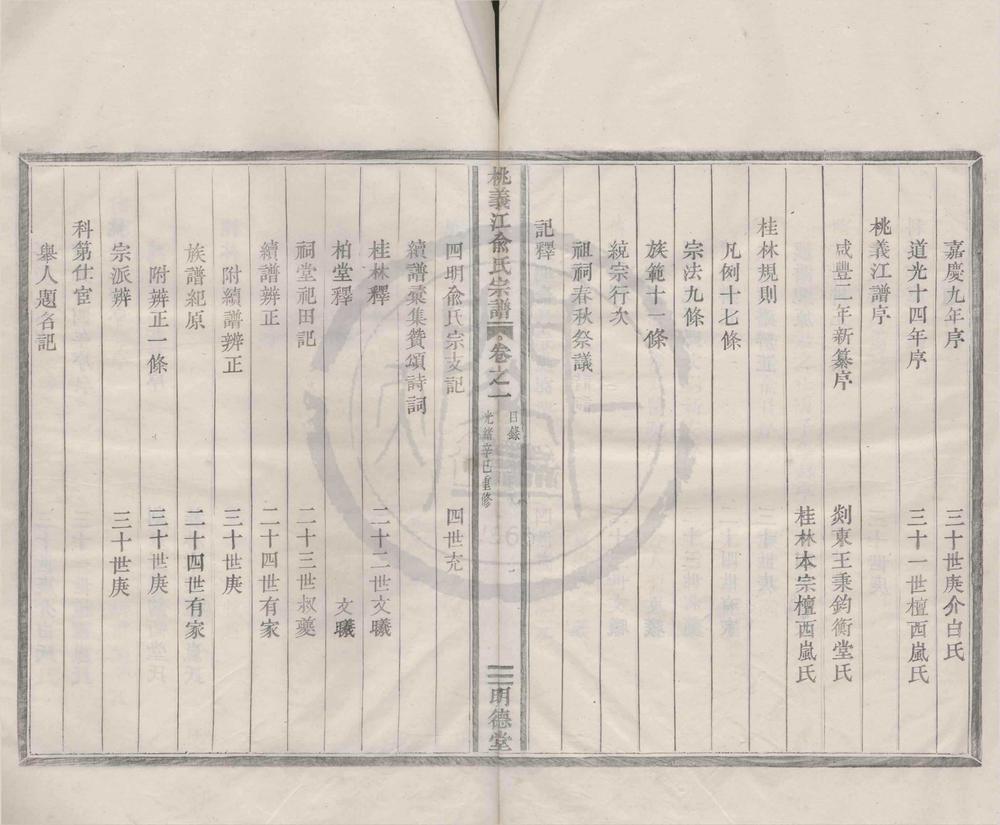 嘉慶九年序 三十世庚介白氏
道光十四年序 三十一世檀西嵐氏
桃義江譜序
咸豐二年新纂序 剡東王秉鈞衡堂氏
桂林本宗檀西嵐氏
桂林規則
凡例十七條
宗法九條
族範十一條
統宗行次
祖祠春秋祭議
記釋
桃義江俞氏宗譜 卷之一 目錄 光緒辛巳重修 二 明德堂
四明俞氏宗支記 四世充
續譜彙集贊頌詩詞
桂林釋 二十二世文曦
柏堂釋 文曦
祠堂祀田記 二十三世叔夔
續譜辨正 二十四世有家
附續譜辨正 三十世庚
族譜紀原 二十四世有家
附辨正一條 三十世庚
宗派辨 三十世庚
科第仕宦
舉人題名記